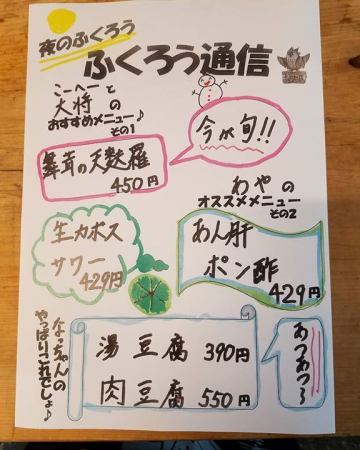 夜のふくろう
ふくろう通信
こーへーと
大将の
おすすめメニュー♪
その1
舞茸の天麩羅
450円
今が旬!!
わやの
オススメメニュー
その2
生カボス
サワー
429円
あん肝
ポン酢
429円
なっちゃんの
やっぱりこれでしょ♪
湯豆腐 390円
肉豆腐 550円
あつあつ〜